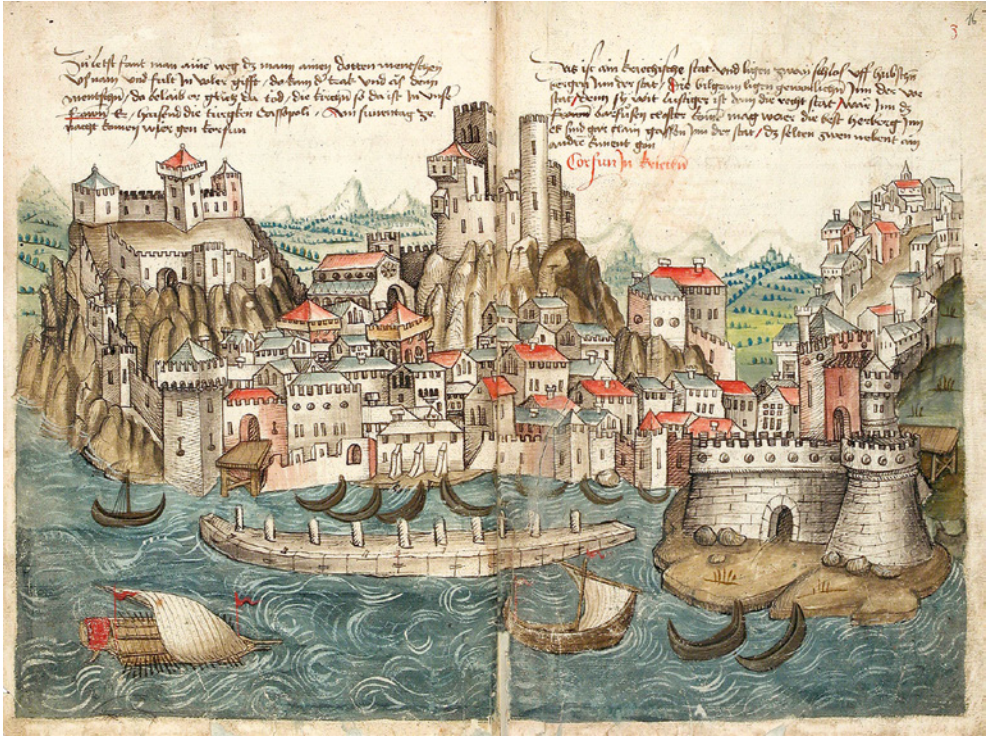 Zu letst fant man ainē weg dz mann ainen dotten mentschen
vnd fult in voler gifft / do kam der trak vnd as denn
mentschen / do belaib er glich da tod / die kirchn so da ist in vnser
frawen Er / haisend die turgken Cassopoli / Am sunentag ze
nacht komen wier gen Corfun
16
3
Das ist ain kriechische stat vnd ligen zwai schlos vff hübschen
bergen Inn der stat / die bilgram ligen gewonlichn Inn der vor
stat / denn sy wit lustiger ist denn die recht stat Inn dz
barfusen closter mag waer die best herberg Inn
sind gar clain gassen Inn der stat / dz selten zwen nebent ain
andre kinent gon
Corfun In kriechn